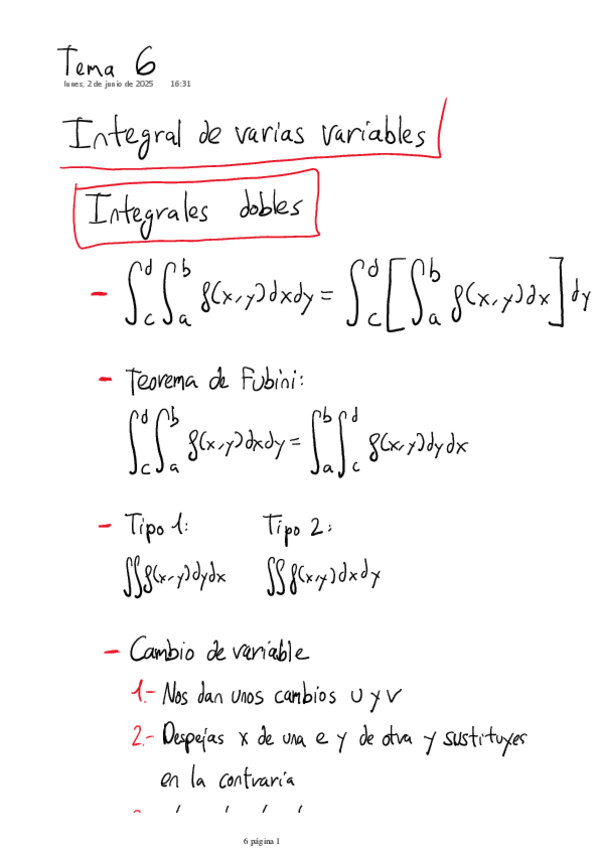 Tema 6
lunes, 2 de junio de 2025 16:31
Integral de varias variables
Integrales dobles
- ∫_c^d ∫_a^b f(x,y)dxdy = ∫_c^d [∫_a^b f(x,y)dx] dy
- Teorema de Fubini:
∫_c^d ∫_a^b f(x,y)dxdy = ∫_a^b ∫_c^d f(x,y)dydx
- Tipo 1: Tipo 2:
∬f(x,y)dydx ∬f(x,y)dxdy
- Cambio de variable
1.- Nos dan unos cambios u y v
2.- Despejas x de una e y de otra y sustituyes
en la contraria
6 página 1